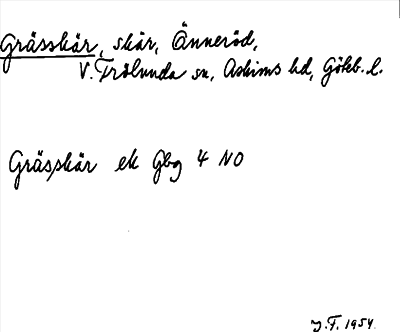 Grässkär, skär, Önneröd,
V. Frölunda sn, Askims hd, Göteb. l.
Grässkär ek Gbg 4 NO
J.F. 1954.